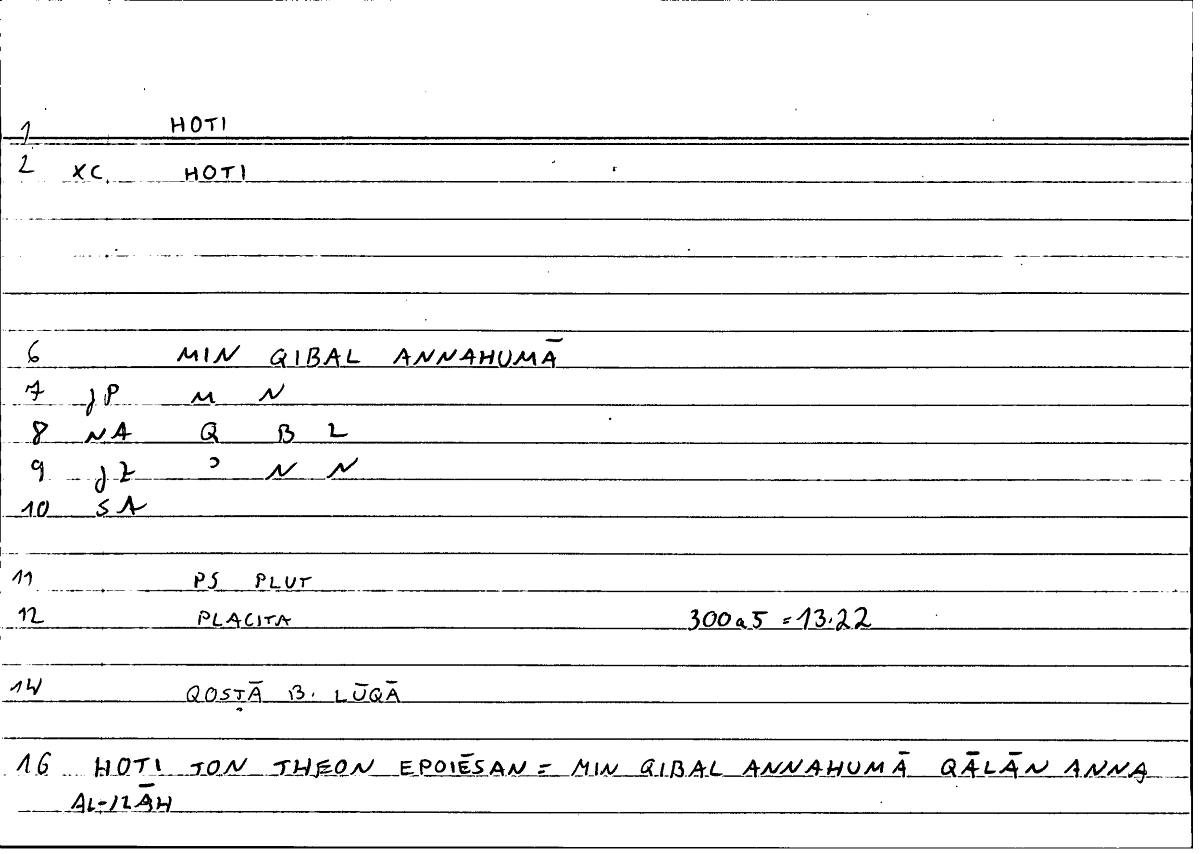 1 HOTI
2 XC. HOTI
6 MIN QIBAL ANNAHUMĀ
7 JP M N
8 NA Q B L
9 JZ ʾ N N
10 SA
11 PS PLUT
12 PLACITA 300a5 = 13.22
14 QOSṬĀ B. LŪQĀ
16 HOTI TON THEON EPOIĒSAN = MIN QIBAL ANNAHUMĀ QĀLĀN ANNA
AL-ILĀH